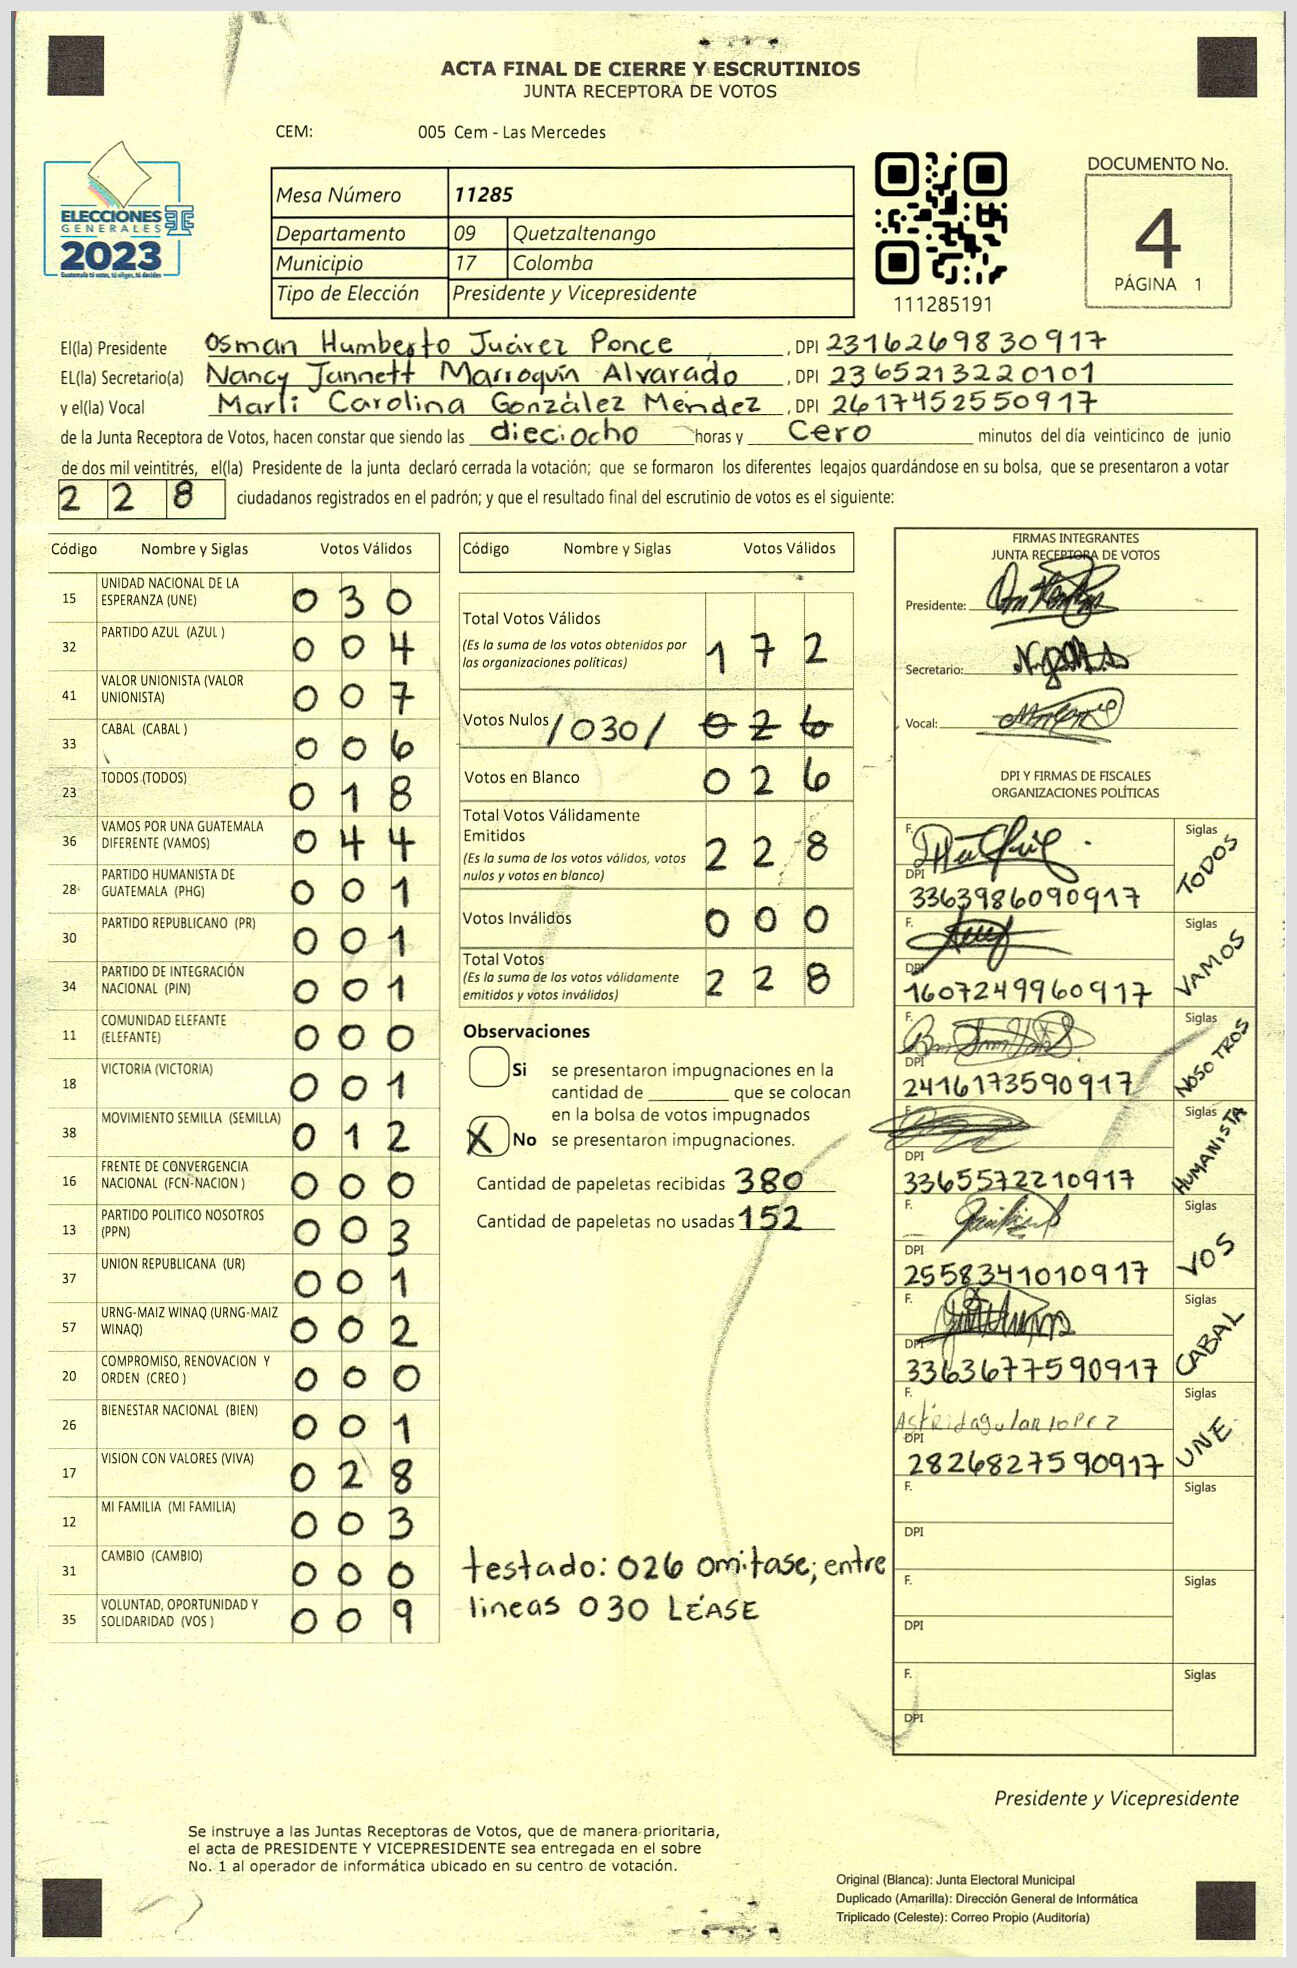 ACTA FINAL DE CIERRE Y ESCRUTINIOS
JUNTA RECEPTORA DE VOTOS
CEM: 005 Cem - Las Mercedes
ELECCIONES
GENERALES
2023
Guatemala tú votas, tú eliges, tú decides
Mesa Número 11285
Departamento 09 Quetzaltenango
Municipio 17 Colomba
Tipo de Elección Presidente y Vicepresidente
111285191
DOCUMENTO No.
4
PÁGINA 1
El(la) Presidente Osman Humberto Juárez Ponce, DPI 2316269830917
EL(la) Secretario(a) Nancy Jannett Marroquín Alvarado, DPI 2365213220101
y el(la) Vocal Marli Carolina González Méndez, DPI 2617452550917
de la Junta Receptora de Votos, hacen constar que siendo las dieciocho horas y Cero minutos del día veinticinco de junio
de dos mil veintitrés, el(la) Presidente de la junta declaró cerrada la votación; que se formaron los diferentes legajos quardándose en su bolsa, que se presentaron a votar
228 ciudadanos registrados en el padrón; y que el resultado final del escrutinio de votos es el siguiente:
Código Nombre y Siglas Votos Válidos
15 UNIDAD NACIONAL DE LA ESPERANZA (UNE) 030
32 PARTIDO AZUL (AZUL ) 004
41 VALOR UNIONISTA (VALOR UNIONISTA) 007
33 CABAL (CABAL ) 006
23 TODOS (TODOS) 018
36 VAMOS POR UNA GUATEMALA DIFERENTE (VAMOS) 044
28 PARTIDO HUMANISTA DE GUATEMALA (PHG) 001
30 PARTIDO REPUBLICANO (PR) 001
34 PARTIDO DE INTEGRACIÓN NACIONAL (PIN) 001
11 COMUNIDAD ELEFANTE (ELEFANTE) 000
18 VICTORIA (VICTORIA) 001
38 MOVIMIENTO SEMILLA (SEMILLA) 012
16 FRENTE DE CONVERGENCIA NACIONAL (FCN-NACION ) 000
13 PARTIDO POLITICO NOSOTROS (PPN) 003
37 UNION REPUBLICANA (UR) 001
57 URNG-MAIZ WINAQ (URNG-MAIZ WINAQ) 002
20 COMPROMISO, RENOVACION Y ORDEN (CREO ) 000
26 BIENESTAR NACIONAL (BIEN) 001
17 VISION CON VALORES (VIVA) 028
12 MI FAMILIA (MI FAMILIA) 003
31 CAMBIO (CAMBIO) 000
35 VOLUNTAD, OPORTUNIDAD Y SOLIDARIDAD (VOS ) 009
Código Nombre y Siglas Votos Válidos
Total Votos Válidos 172
(Es la suma de los votos obtenidos por
las organizaciones políticas)
Votos Nulos /030/ 026
Votos en Blanco 026
Total Votos Válidamente
Emitidos 228
(Es la suma de los votos válidos, votos
nulos y votos en blanco)
Votos Inválidos 000
Total Votos 228
(Es la suma de los votos válidamente
emitidos y votos inválidos)
Observaciones
Si se presentaron impugnaciones en la
cantidad de ________ que se colocan
en la bolsa de votos impugnados
X No se presentaron impugnaciones.
Cantidad de papeletas recibidas 380
Cantidad de papeletas no usadas 152
testado: 026 omitase; entre
lineas 030 LÉASE
FIRMAS INTEGRANTES
JUNTA RECEPTORA DE VOTOS
Presidente:
Secretario:
Vocal:
DPI Y FIRMAS DE FISCALES
ORGANIZACIONES POLÍTICAS
F. Siglas TODOS
DPI 3363986090917
F. Siglas VAMOS
DPI 1607249960917
F. Siglas NOSOTROS
DPI 2416173590917
F. Siglas HUMANISTA
DPI 3365572210917
F. Siglas VOS
DPI 2558341010917
F. Siglas CABAL
DPI 3363677590917
F. Siglas UNE
DPI 2826827590917
F. Siglas
DPI
F. Siglas
DPI
F. Siglas
DPI
Presidente y Vicepresidente
Se instruye a las Juntas Receptoras de Votos, que de manera prioritaria,
el acta de PRESIDENTE Y VICEPRESIDENTE sea entregada en el sobre
No. 1 al operador de informática ubicado en su centro de votación.
Original (Blanca): Junta Electoral Municipal
Duplicado (Amarilla): Dirección General de Informática
Triplicado (Celeste): Correo Propio (Auditoría)